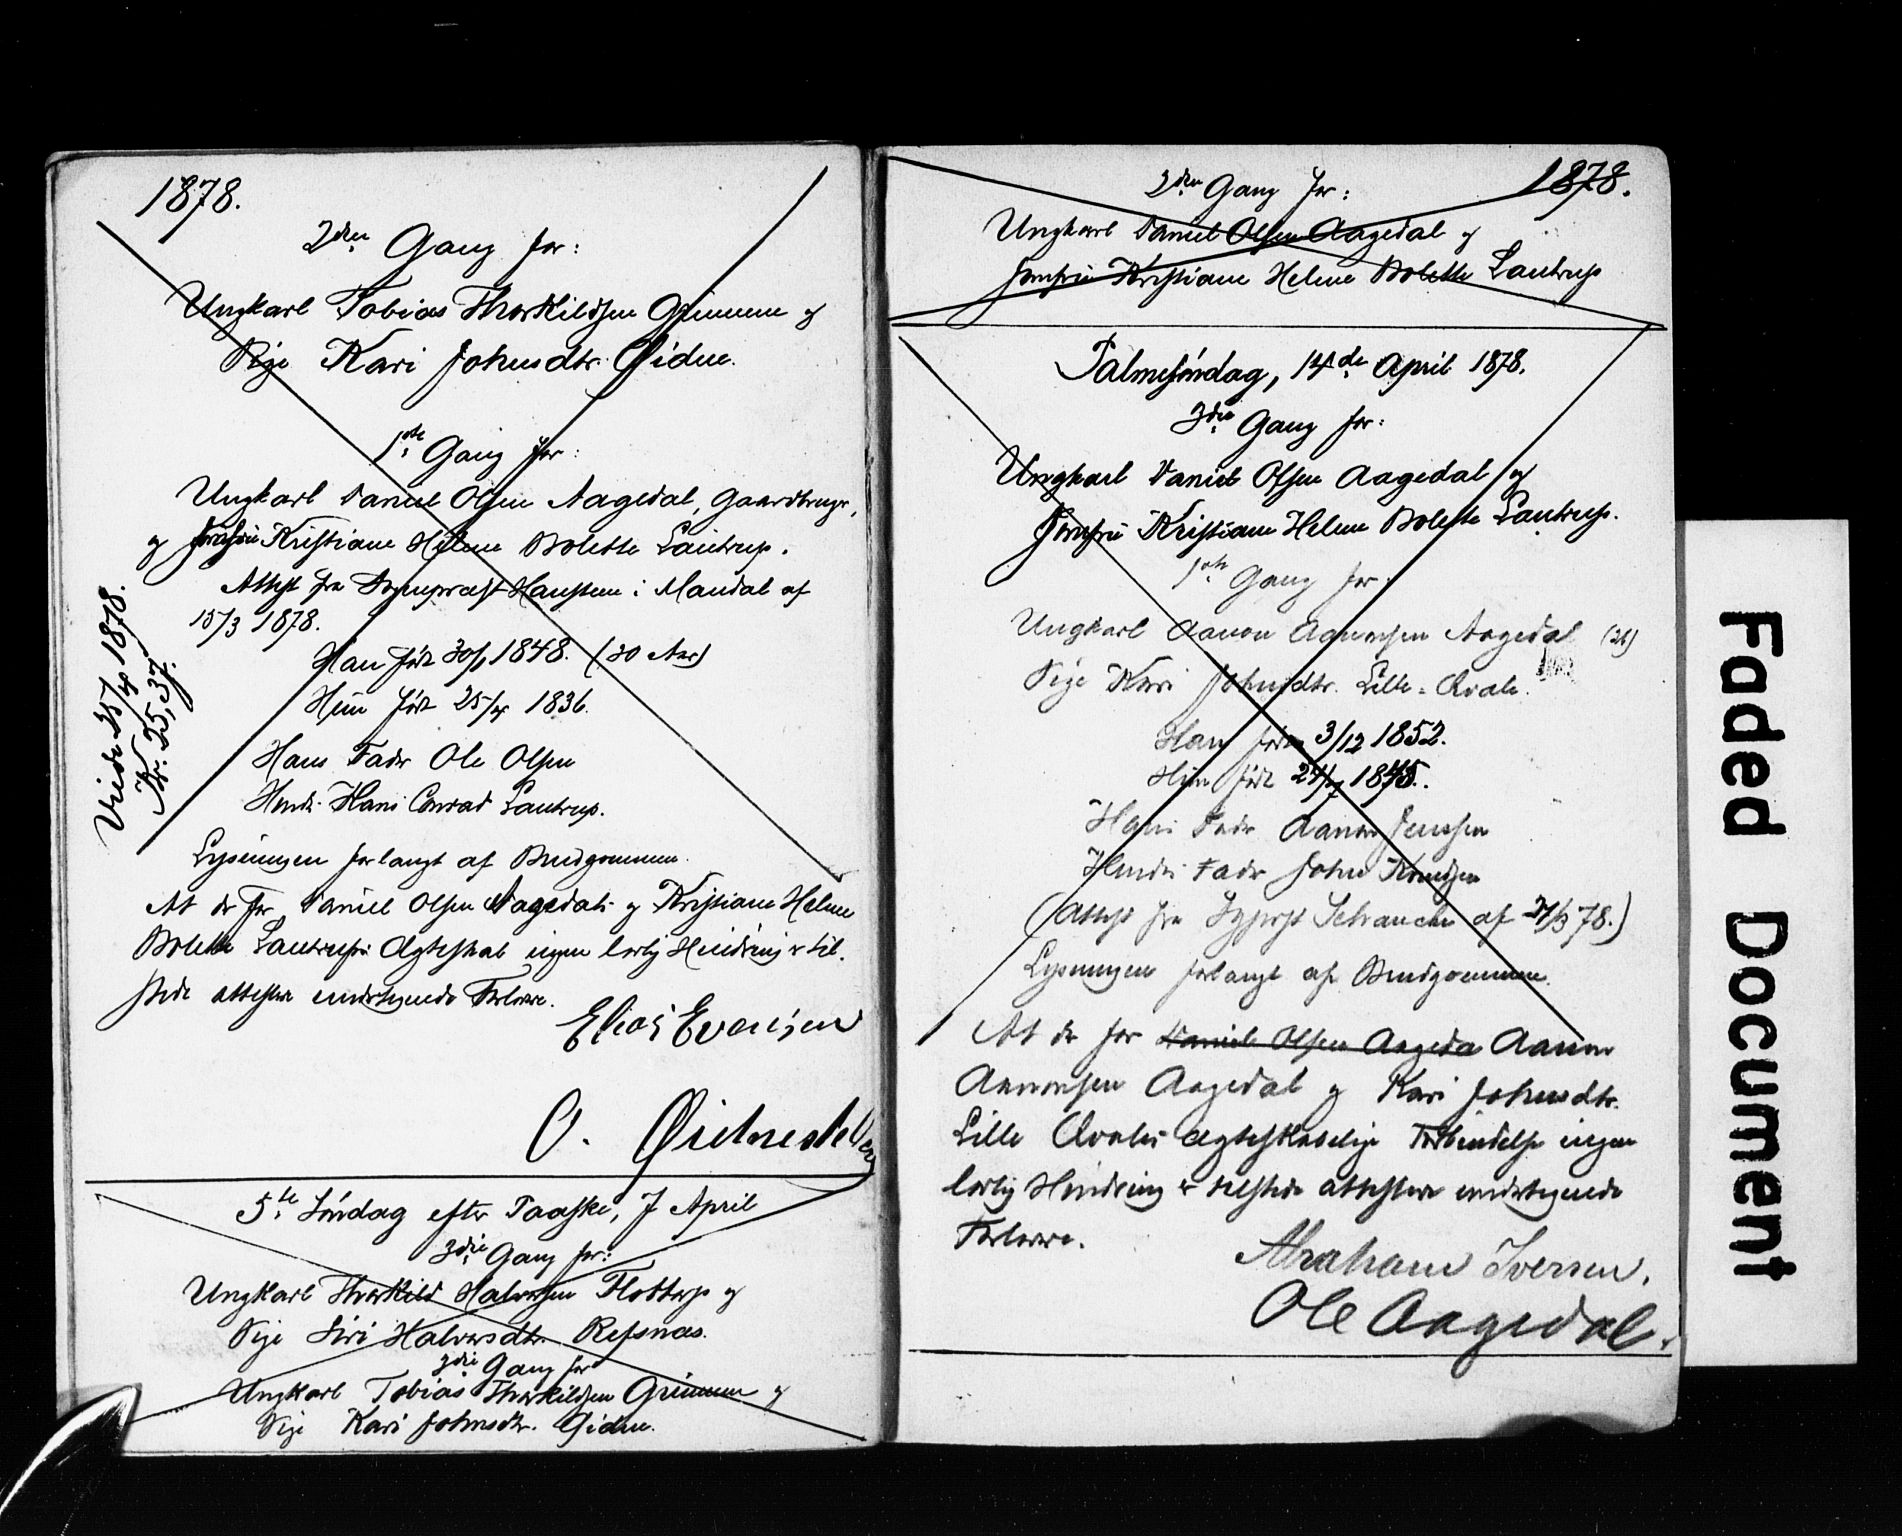 1878.
2den Gang for:
Ungkarl Tobias Thorkildsen Grimme og
Pige Kari Johnsdtr. Øidne.
1ste Gang for:
Ungkarl Daniel Olsen Aagedal, Gaardbruger,
og Jomfru Kristiane Helene Bolette Lautrup.
Attest fra Sognepræst Hanssen i Mandal af
15/3 1878.
Han født 30/1 1848. (30 Aar)
Hun født 25/4 1836.
Hans Fader Ole Olsen
Hendes Hans Conrad Lautrup.
Lysningen forlangt af Brudgommen.
At der for Daniel Olsen Aagedals og Kristiane Helene
Bolette Lautrups Ægteskab ingen lovlig Hindring er til-
stede attestere undertegnede Forlovere.
Elias Evensen
O. Øidne
Viede 25/4 1878.
Kr. 25,37.
5te Søndag efter Paaske, 7 April
3die Gang for:
Ungkarl Thorkild Halvorsen Flottorp og
Pige Siri Halvorsdtr. Refsnæs.
3die Gang for
Ungkarl Tobias Thorkildsen Grimme og
Pige Kari Johnsdtr. Øidne.
1878.
2den Gang for:
Ungkarl Daniel Olsen Aagedal og
Jomfru Kristiane Helene Bolette Lautrup
Palmesøndag, 14de April 1878.
3die Gang for:
Ungkarl Daniel Olsen Aagedal og
Jomfru Kristiane Helene Bolette Lautrup.
1ste Gang for:
Ungkarl Aanon Aanonsen Aagedal (26)
Pige Kari Johnsdtr. Lille-Qvale.
Han født 3/12 1852.
Hun født 1845.
Hans Fader Aanon Jensen
Hendes Fader John Knudsen
(Attest fra Sgprst Schanche af 78.)
Lysningen forlangt af Brudgommen.
At der for Daniel Olsen Aageda Aanon
Aanonsen Aagedal og Kari Johnsdtr.
Lille Qvales ægteskabelige Forbindelse ingen
lovlig Hindring er tilstede attestere undertegnede
Forlovere.
Abraham Iversen.
Ole Aagedal.
Faded Document